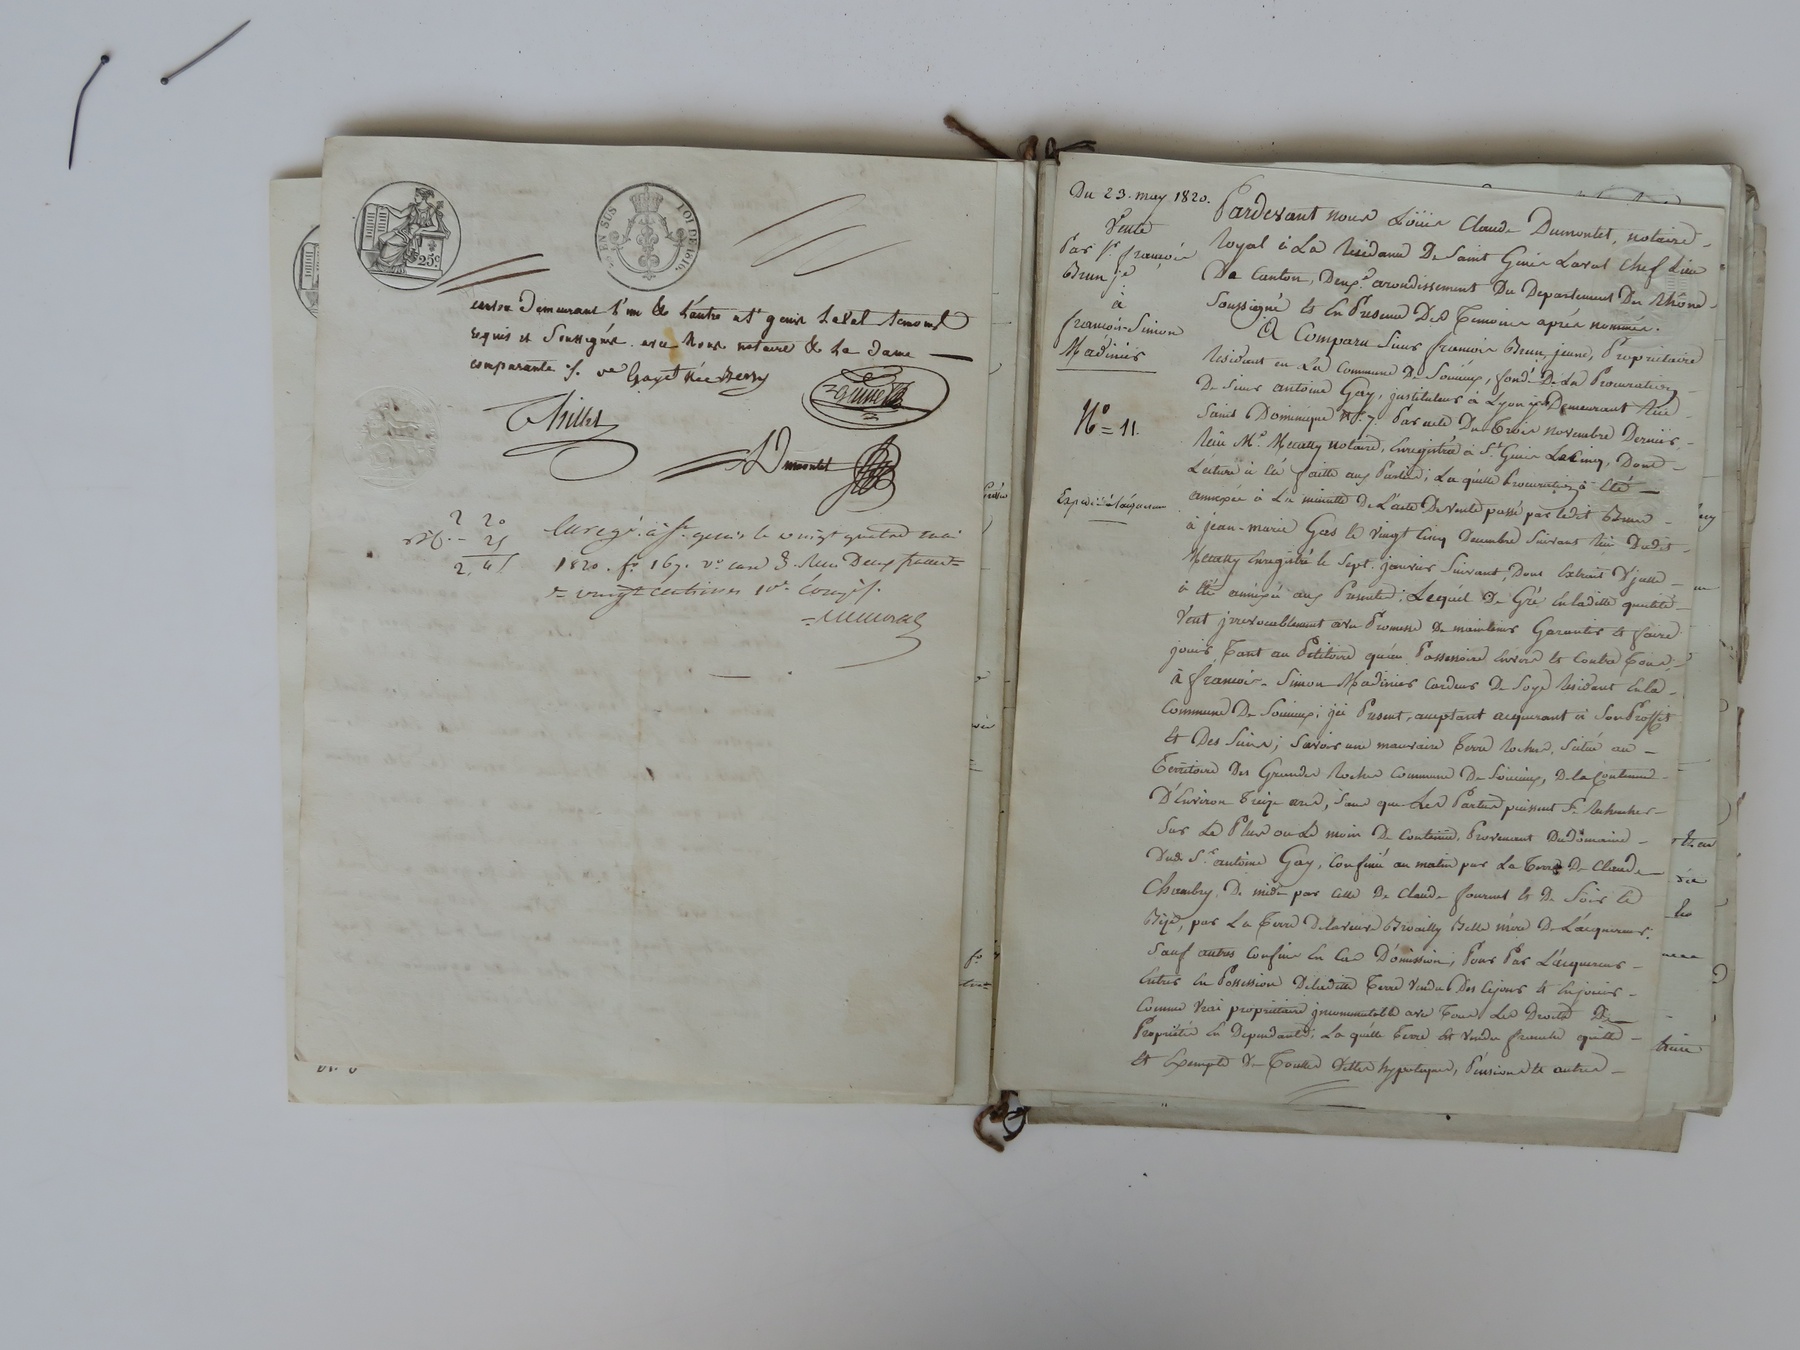 25c.
EN SUS
LOI DE 1816.
demeurant l'un & l'autre a St genis Laval temoins
requis et Soussignés avec Nous notaire & La dame
comparante ./. ve Gayet née
Thillet
Dumontet
2 20
- 25
2, 45
Enregé. à St. genis le vingt quatre mai
1820. fo 167. vo case 8. Reçu Deux francs
& vingt centimes 10e. Compris.
Du 23. may 1820.
Vente
Par Sr. françois
Brun je.
à
françois-Simon
Madinier
No = 11.
Expédié à l'acquereur
Pardevant nous Louis Claude Dumontet, notaire
Royal à La Residance De Saint Genis Laval Chef Lieu
De Canton, Deuxe. arondissement Du Departement Du Rhône
Soussigné et En Presence Des Temoins après nommés.
A Comparu Sieur françois Brun jeune, Propriétaire
Residant en La Commune De Soucieux, fondé De La Procuration
De Sieur antoine Gay, jnstituteur à Lyon y Demeurant Rue
Saint Dominique No. 7. Par acte Du Trois novembre Dernier
Reçu Me. notaire, Enregistré à St. Genis Le Cinq, Dont
Lecture à été faitte aux Parties; La quelle Procuration à été
annexée à La minutte De L'acte De Vente passé par ledit Brun
à jean-marie Gros le Vingt Cinq Decembre Suivant Reçu Dudit
Enregistré le Sept janvier Suivant, Dont Extrait
à été annexée aux Presentes; Lequel De Gré En laditte qualité
Vent jrrevocablement avec Promesse De maintenir Garantir et faire
jouir, Tant au Petitoire qu'au Possessoire Envers et Contre Tous
à françois-Simon Madinier Cardeur De Soye Residant En la
Commune De Soucieux; jci Present, acceptant acquerant à Son Proffit
et Des Siens; Savoir une mauvaise Terre Rocher, Scitué au
Territoire Des Grandes Roches Commune De Soucieux, De la Contenue
D'Environ Treize ares, Sans que Les Parties puissent Se Rechercher
Sur Le Plus ou Le moins De Contenue, Provenant Du Domaine
Dudt. Sr. antoine Gay, Confinée au matin par La Terre De Claude
Chambry De midi par celle De Claude fournet et De Soir et
Bize, par La Terre De la veuve Brouilly Belle mère De L'acquereur;
Sauf autres Confins En Cas D'omission; Pour Par L'acquereur
Entrer En Possession De laditte Terre Vendue Des Cejour et En jouir
Comme Vrai propriétaire jncommutable avec Tous Les Droits De
Propriété En Dependants; La quelle Terre Est Vendue franche quitte
Et Exempte De Touttes Dettes hypotèques, Pensions et autres